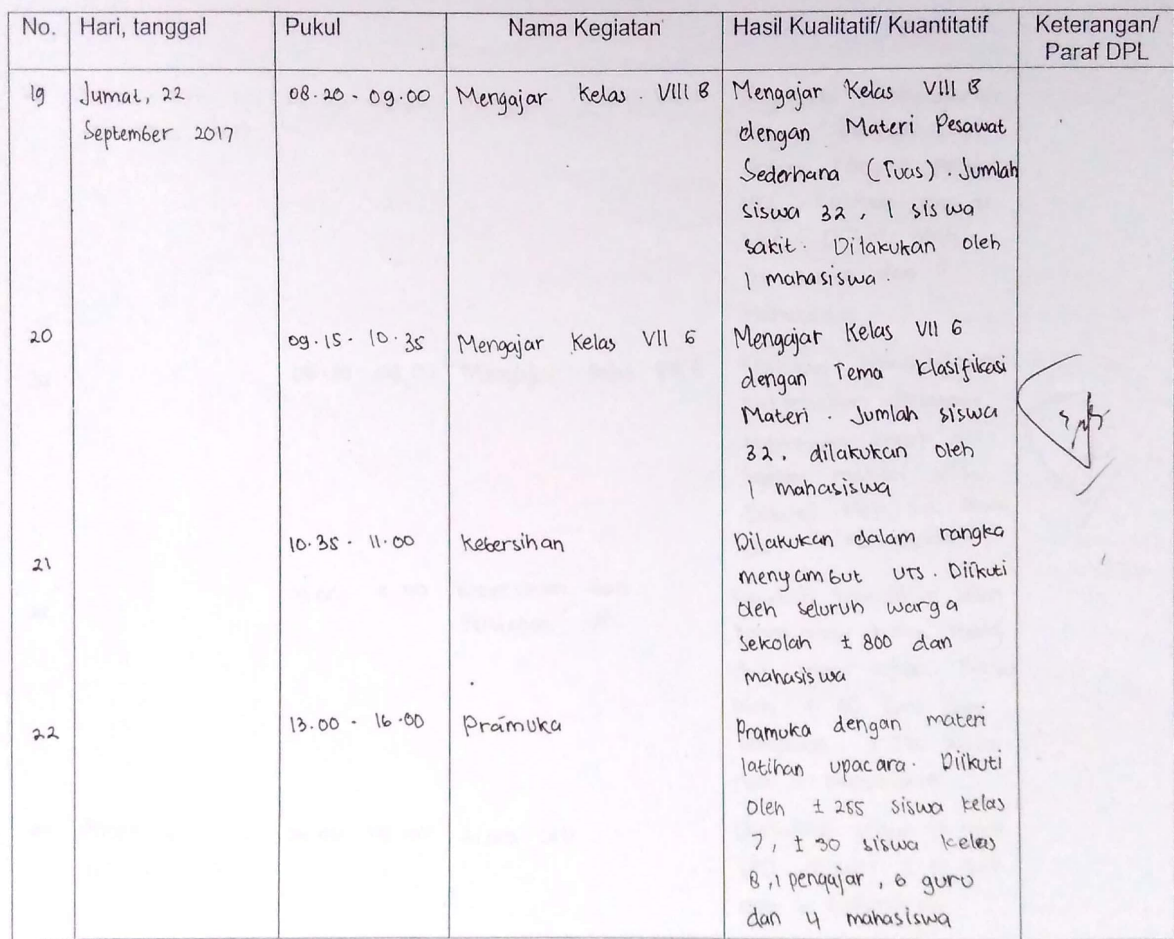 No. Hari, tanggal Pukul Nama Kegiatan Hasil Kualitatif/ Kuantitatif Keterangan/
Paraf DPL
19 Jumat, 22 08.20 - 09.00 Mengajar Kelas VIII B Mengajar Kelas VIII B
September 2017 dengan Materi Pesawat
Sederhana (Tuas). Jumlah
siswa 32, 1 siswa
sakit. Dilakukan oleh
1 mahasiswa.
20 09.15 - 10.35 Mengajar Kelas VII G Mengajar Kelas VII G
dengan Tema Klasifikasi
Materi. Jumlah siswa
32. dilakukan oleh
1 mahasiswa
21 10.35 - 11.00 Kebersihan Dilakukan dalam rangka
menyambut UTS. Diikuti
oleh seluruh warga
sekolah ± 800 dan
mahasiswa
22 13.00 - 16.00 Pramuka Pramuka dengan materi
latihan upacara. Diikuti
oleh ± 255 siswa kelas
7, ± 30 siswa kelas
8, 1 pengajar, 6 guru
dan 4 mahasiswa